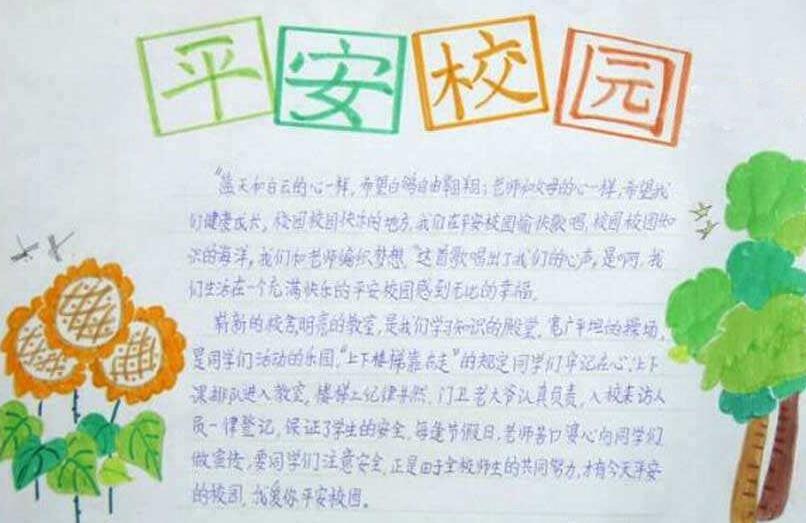 平安校园
"蓝天和白云的心一样,希望白鸽自由翱翔;老师和父母的心一样,希望我
们健康成长,校园校园快乐的地方,我们在平安校园愉快歌唱,校园校园知
识的海洋,我们和老师编织梦想"这首歌唱出了我们的心声,是啊,我
们生活在一个充满快乐的平安校园感到无比的幸福。
崭新的校舍,明亮的教室,是我们学习知识的殿堂,宽广平坦的操场,
是同学们活动的乐园,"上下楼梯靠右走"的规定同学们牢记在心,上下
课排队进入教室,楼梯上纪律井然,门卫老大爷认真负责,入校来访人
员一律登记,保证了学生的安全,每逢节假日,老师苦口婆心向同学们
做宣传,要同学们注意安全,正是由于全校师生的共同努力,才有今天平安
的校园,我爱你平安校园。